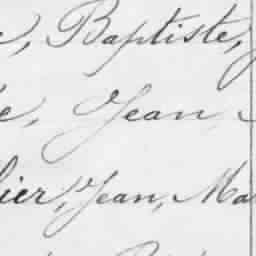 , Baptiste,
e, Jean,
lier, Jean, Ma